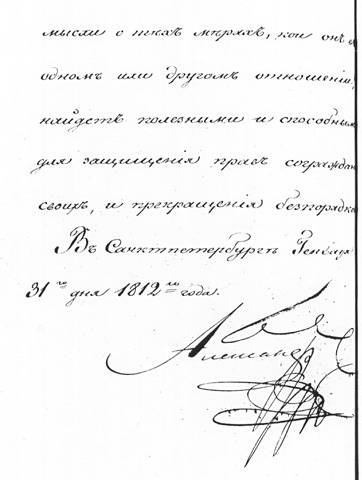 мысли о тѣхъ мѣрахъ, кои онъ в
одномъ или другомъ отношеніи,
найдетъ полезными и способным
для защищенія правъ сограждан
своихъ, и прекращенія безпорядко
Въ Санктпетербургѣ Генваря
31го дня 1812го года.
Александръ